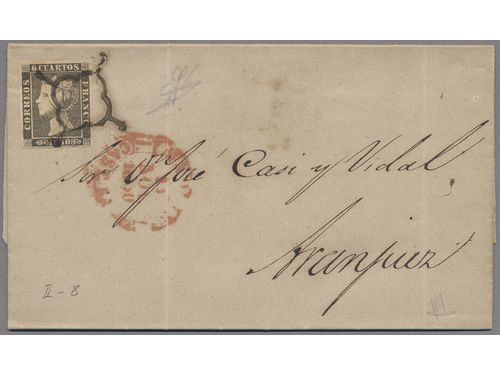 6 CUARTOS
CORREOS
FRANCO
Sor Dn José Casi y Vidal
Aranjuez
II - 8